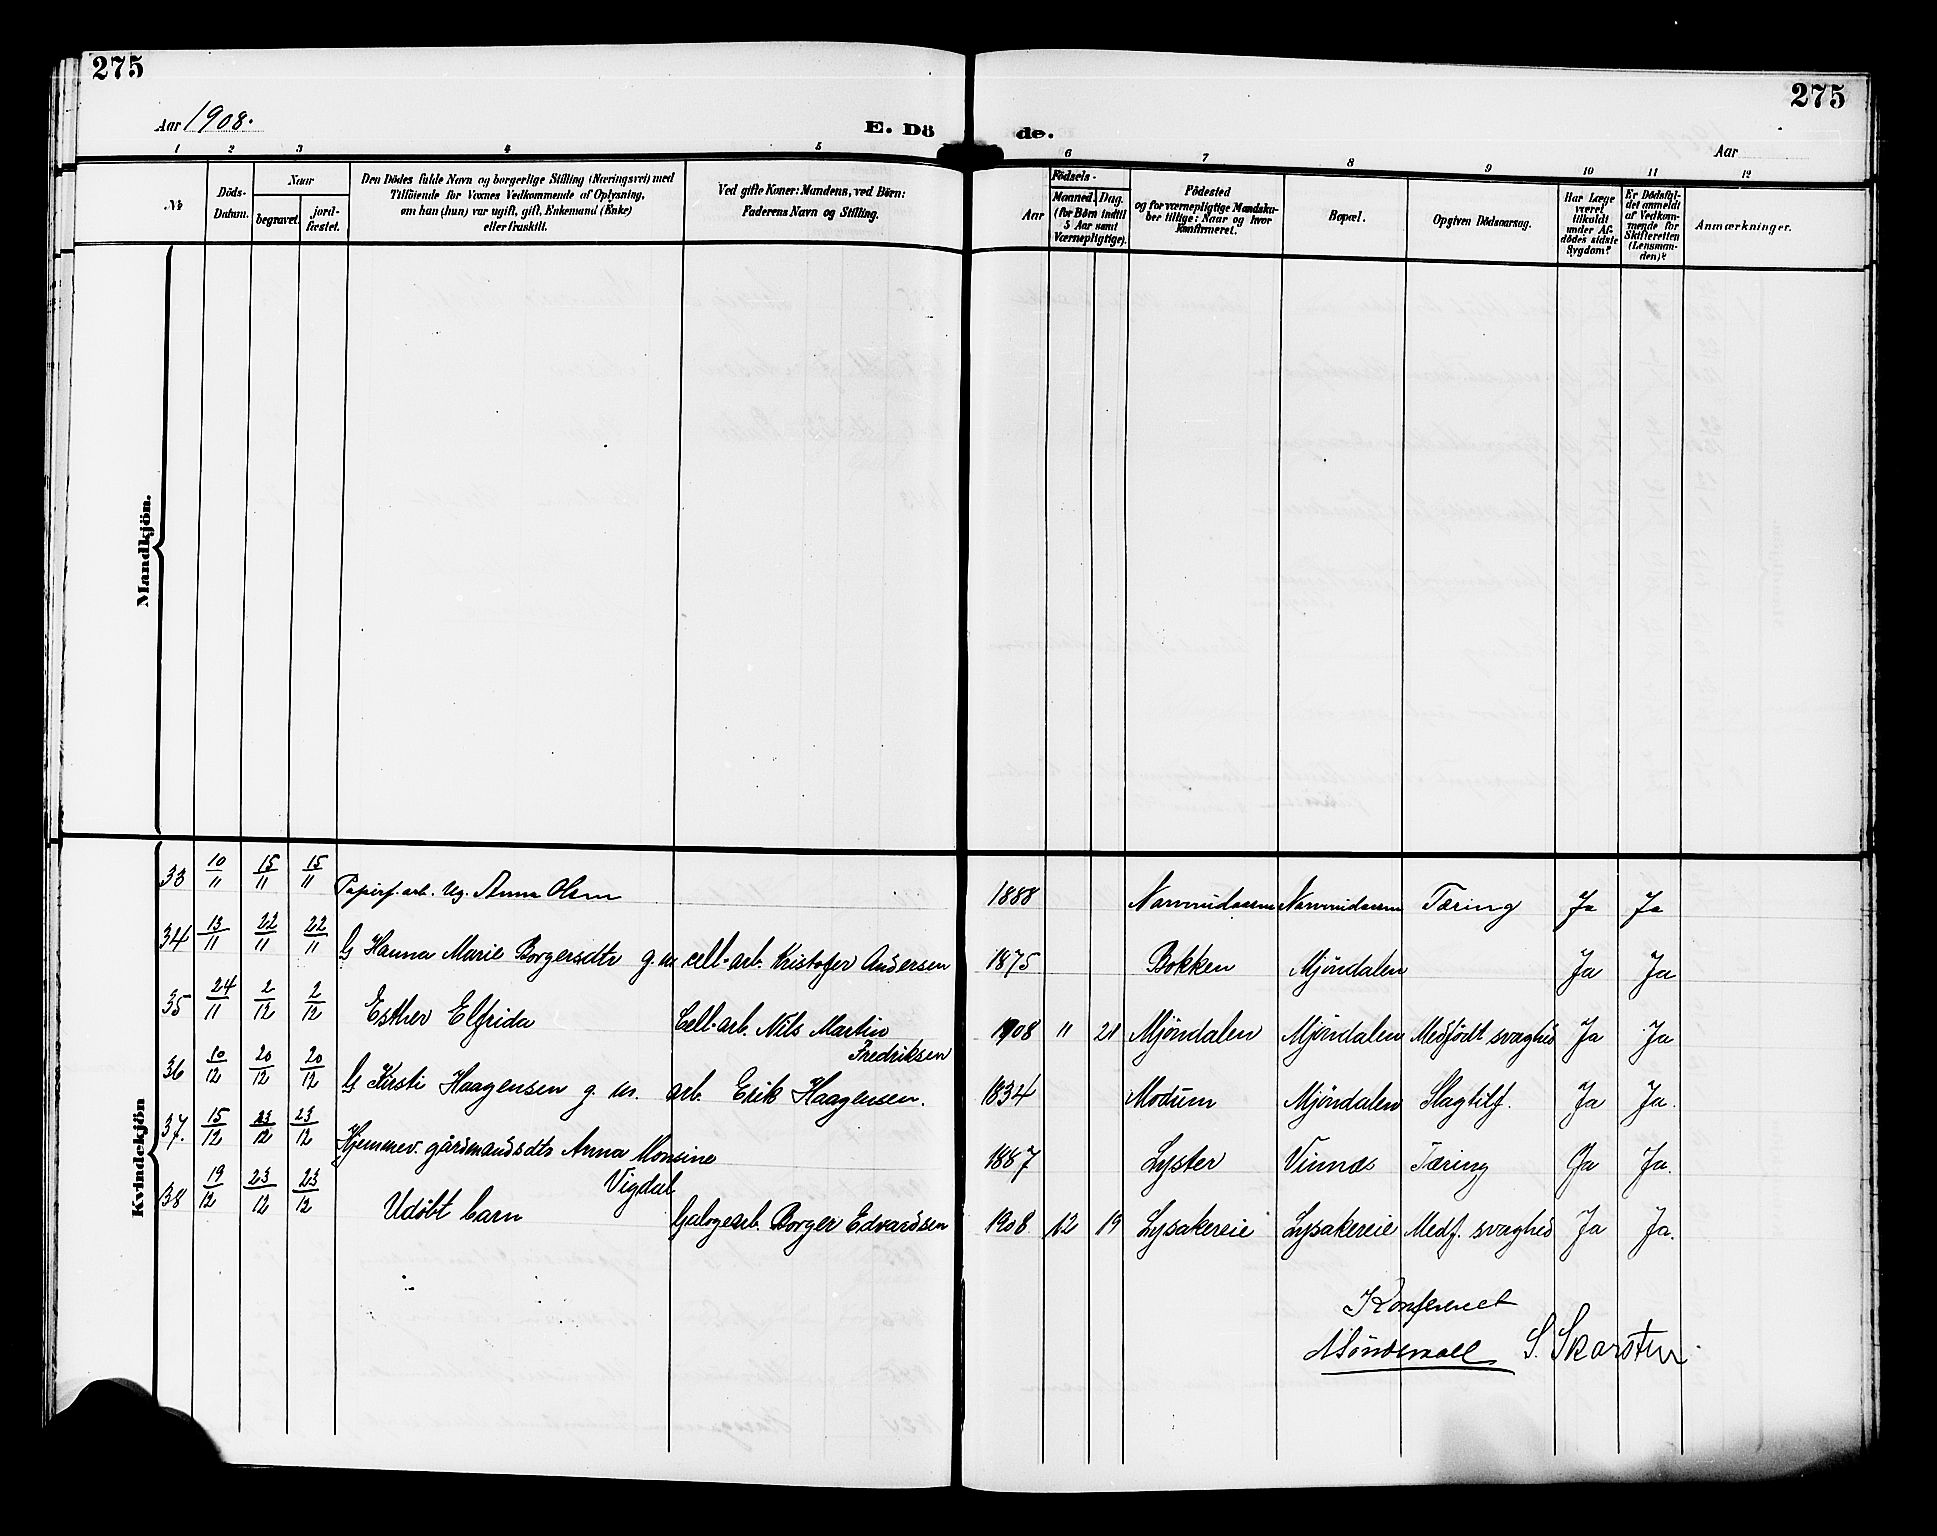 275
275
Aar 1908.
E. Dö de.
Aar
1 2 3 4 5 6 7 8 9 10 11 12
№
Döds-Datum.
Naar
begravet.
jord-fæstet.
Den Dödes fulde Navn og borgerlige Stilling (Næringsvei) med
Tilföiende for Voxnes Vedkommende af Oplysning,
om han (hun) var ugift, gift, Enkemand (Enke)
eller fraskilt.
Ved gifte Koner: Mandens, ved Börn:
Faderens Navn og Stilling.
Födsels-
Aar
Maaned. Dag.
(for Börn indtil
5 Aar samt
Værnepligtige).
Födested
og for værnepligtige Mandska-
ber tillige: Naar og hvor
konfirmeret.
Bopæl.
Opgiven Dödsaarsag.
Har Læge
været
tilkaldt
under Af-
dödes sidste
Sygdom?
Er Dödsfal-
det anmeldt
af Vedkom-
mende for
Skifteretten
(Lensman-
den)?
Anmærkninger.
Mandkjön.
Kvindekjön
33 10/11 15/11 15/11 Papirf. arb. Ug. Anna Olsen 1888 Narverudaasen Narverudaasen Tæring Ja Ja
34 13/11 22/11 22/11 G Hanna Marie Borgersdtr g. m. cell-arb. Kristofer Andersen 1875 Bokken Mjöndalen Ja Ja
35 24/11 2/12 2/12 Esther Elfrida Cell-arb. Nils Martin 1908 11 21 Mjöndalen Mjöndalen Medfödt svaghed Ja Ja
Fredriksen
36 10/12 20/12 20/12 G Kirsti Haagensen g. m. arb. Erik Haagensen. 1834 Modum Mjöndalen Slagtilf. Ja Ja.
37. 15/12 23/12 23/12 Hjemmev. gårdmandsdtr Anna Monsine 1887 Lyster Vinnes Tæring Ja Ja.
Vigdal
38 19/12 23/12 23/12 Udöbt barn Galogearb. Borger Edvardsen 1908 12 19 Lysakereie Lysakereie Medf. svaghed Ja Ja.
Konfereret
S. Skarsten